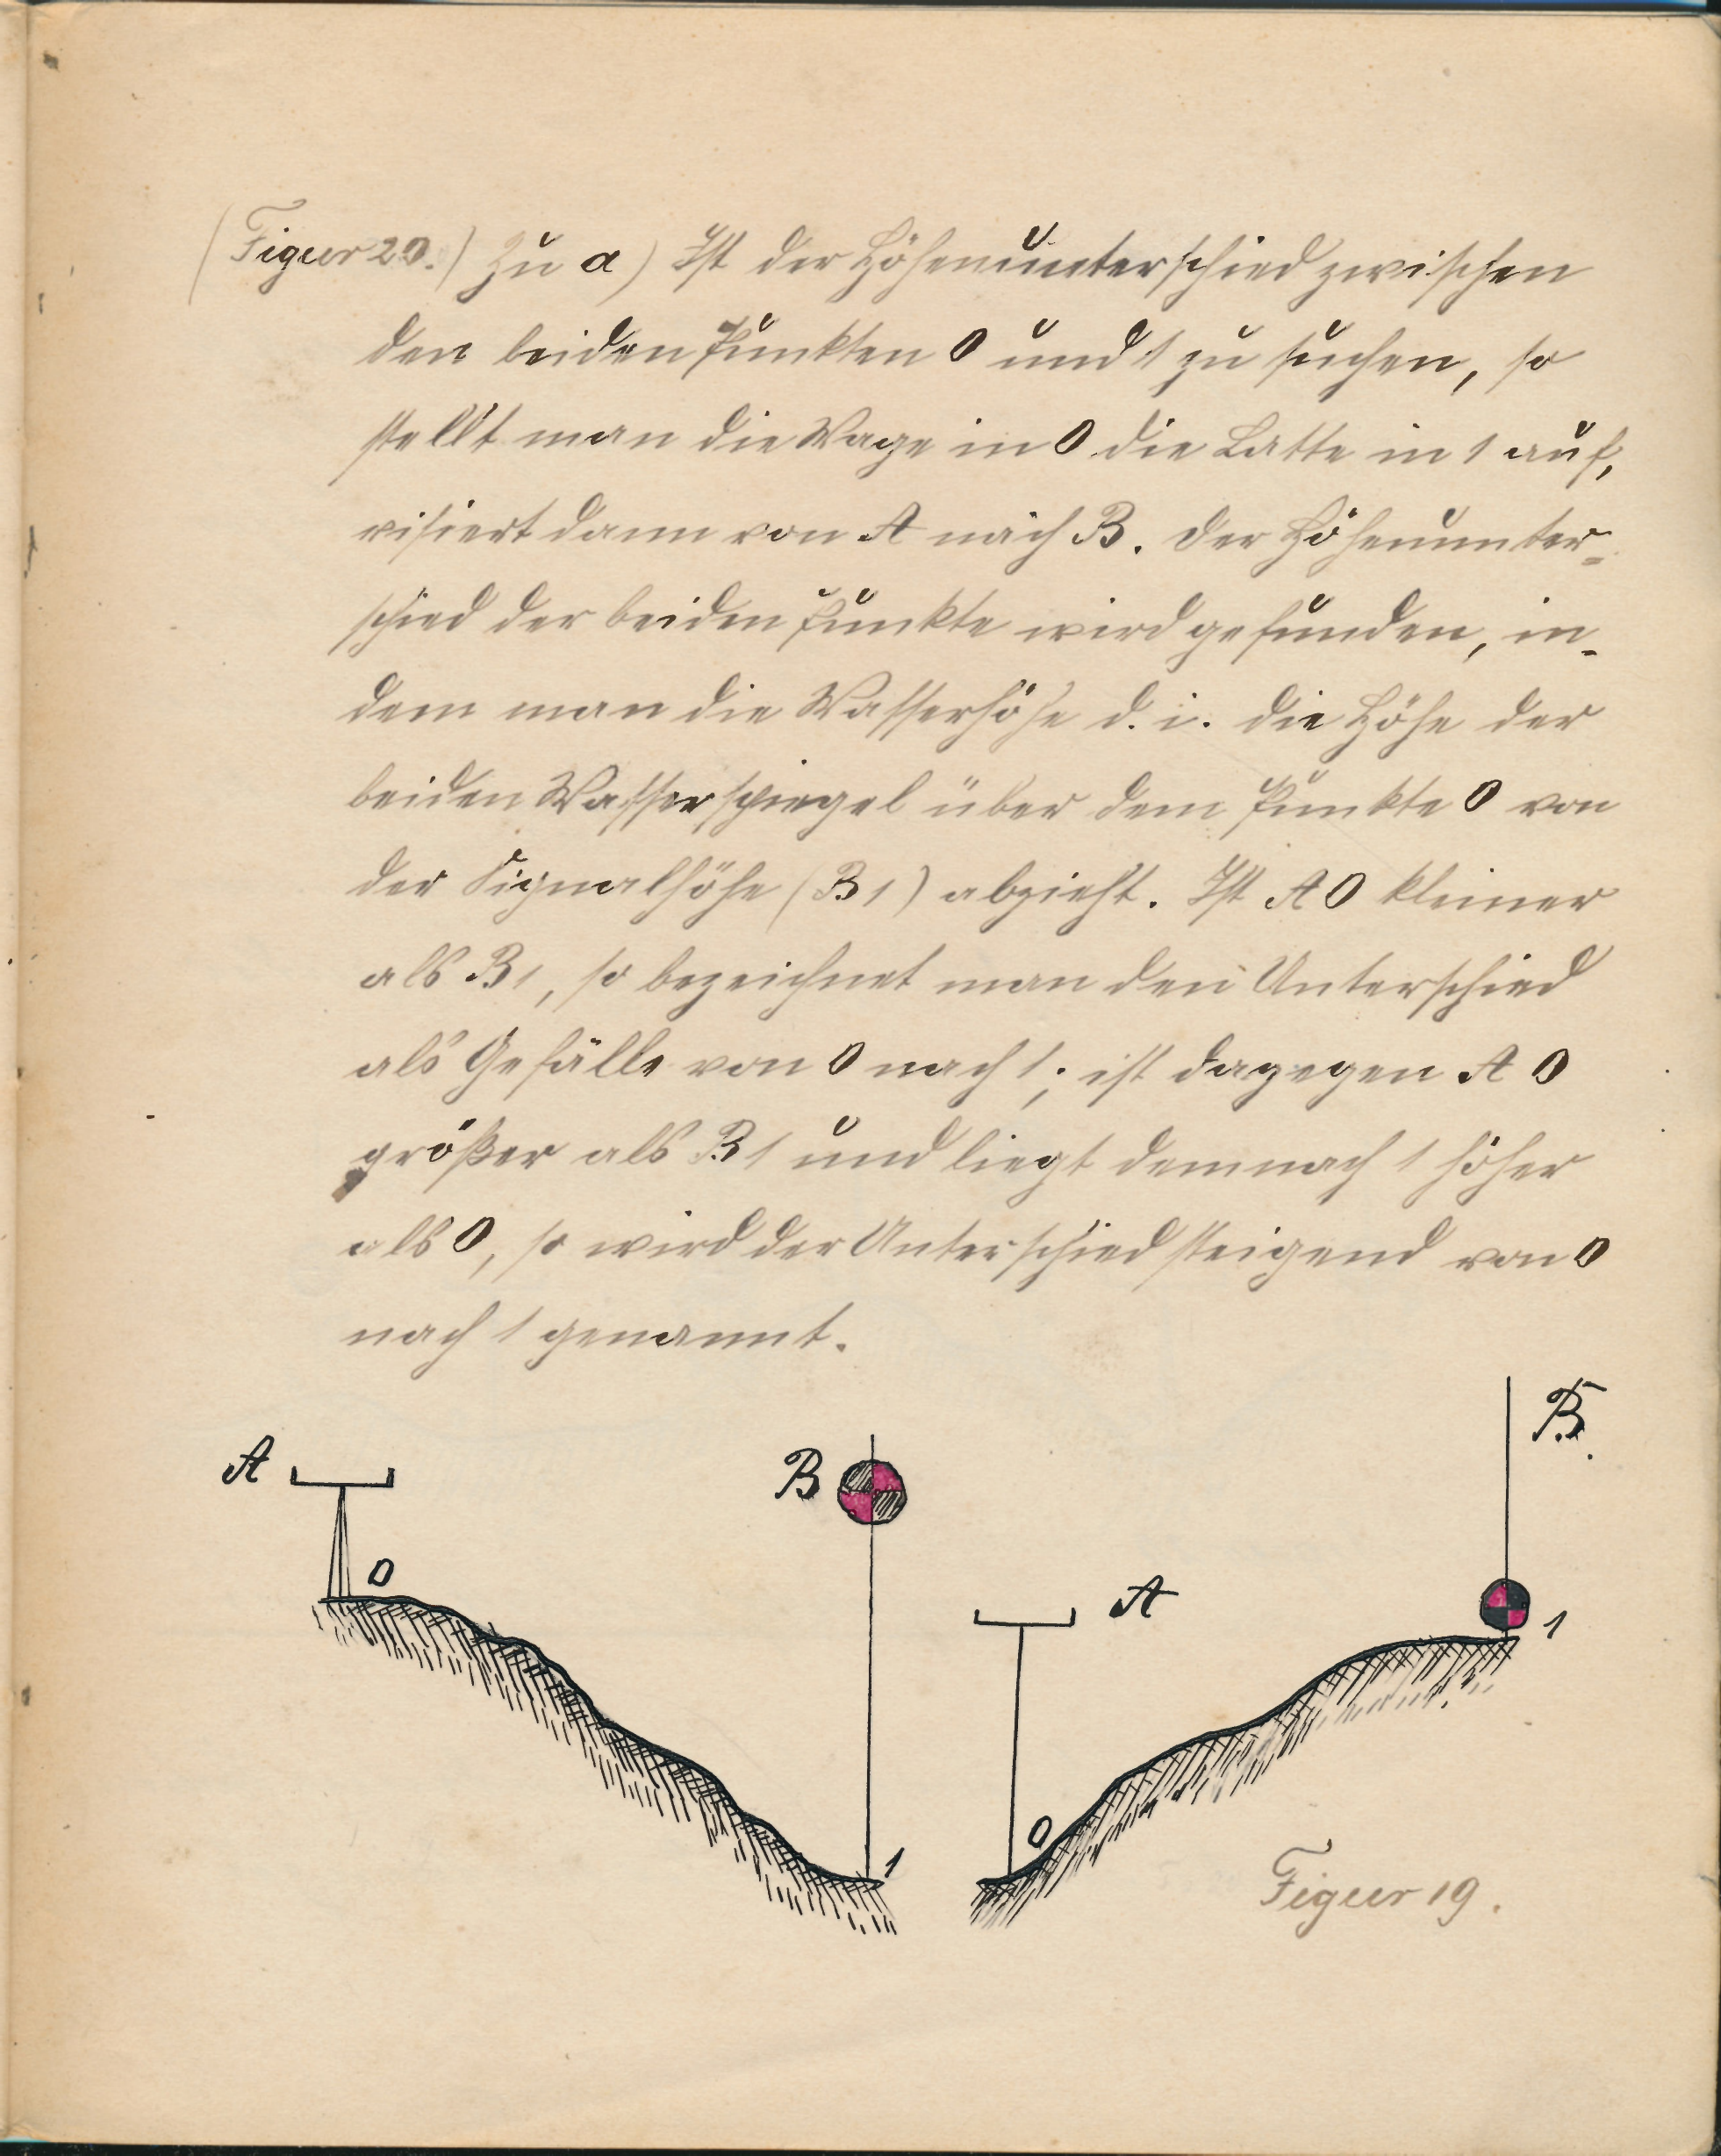 (Figur 20.) Zu a) Ist der Höhenunterschied zwischen
den beiden Punkten 0 und 1 zu suchen, so
stellt man die Wage in 0 die Latte in 1 auf,
visiert dann von A nach B. Der Höhenunter-
schied der beiden Punkte wird gefunden, in-
dem man die Wasserhöhe d. i. die Höhe der
beiden Wasserspiegel über dem Punkte 0 von
der Signalhöhe (B 1) abzieht. Ist A 0 kleiner
als B 1, so bezeichnet man den Unterschied
als Gefälle von 0 nach 1; ist dagegen A 0
größer als B 1 und liegt demnach 1 höher
als 0, so wird der Unterschied steigend von 0
nach 1 genannt.
B.
A B
0 A
1
0 1
Figur 19.